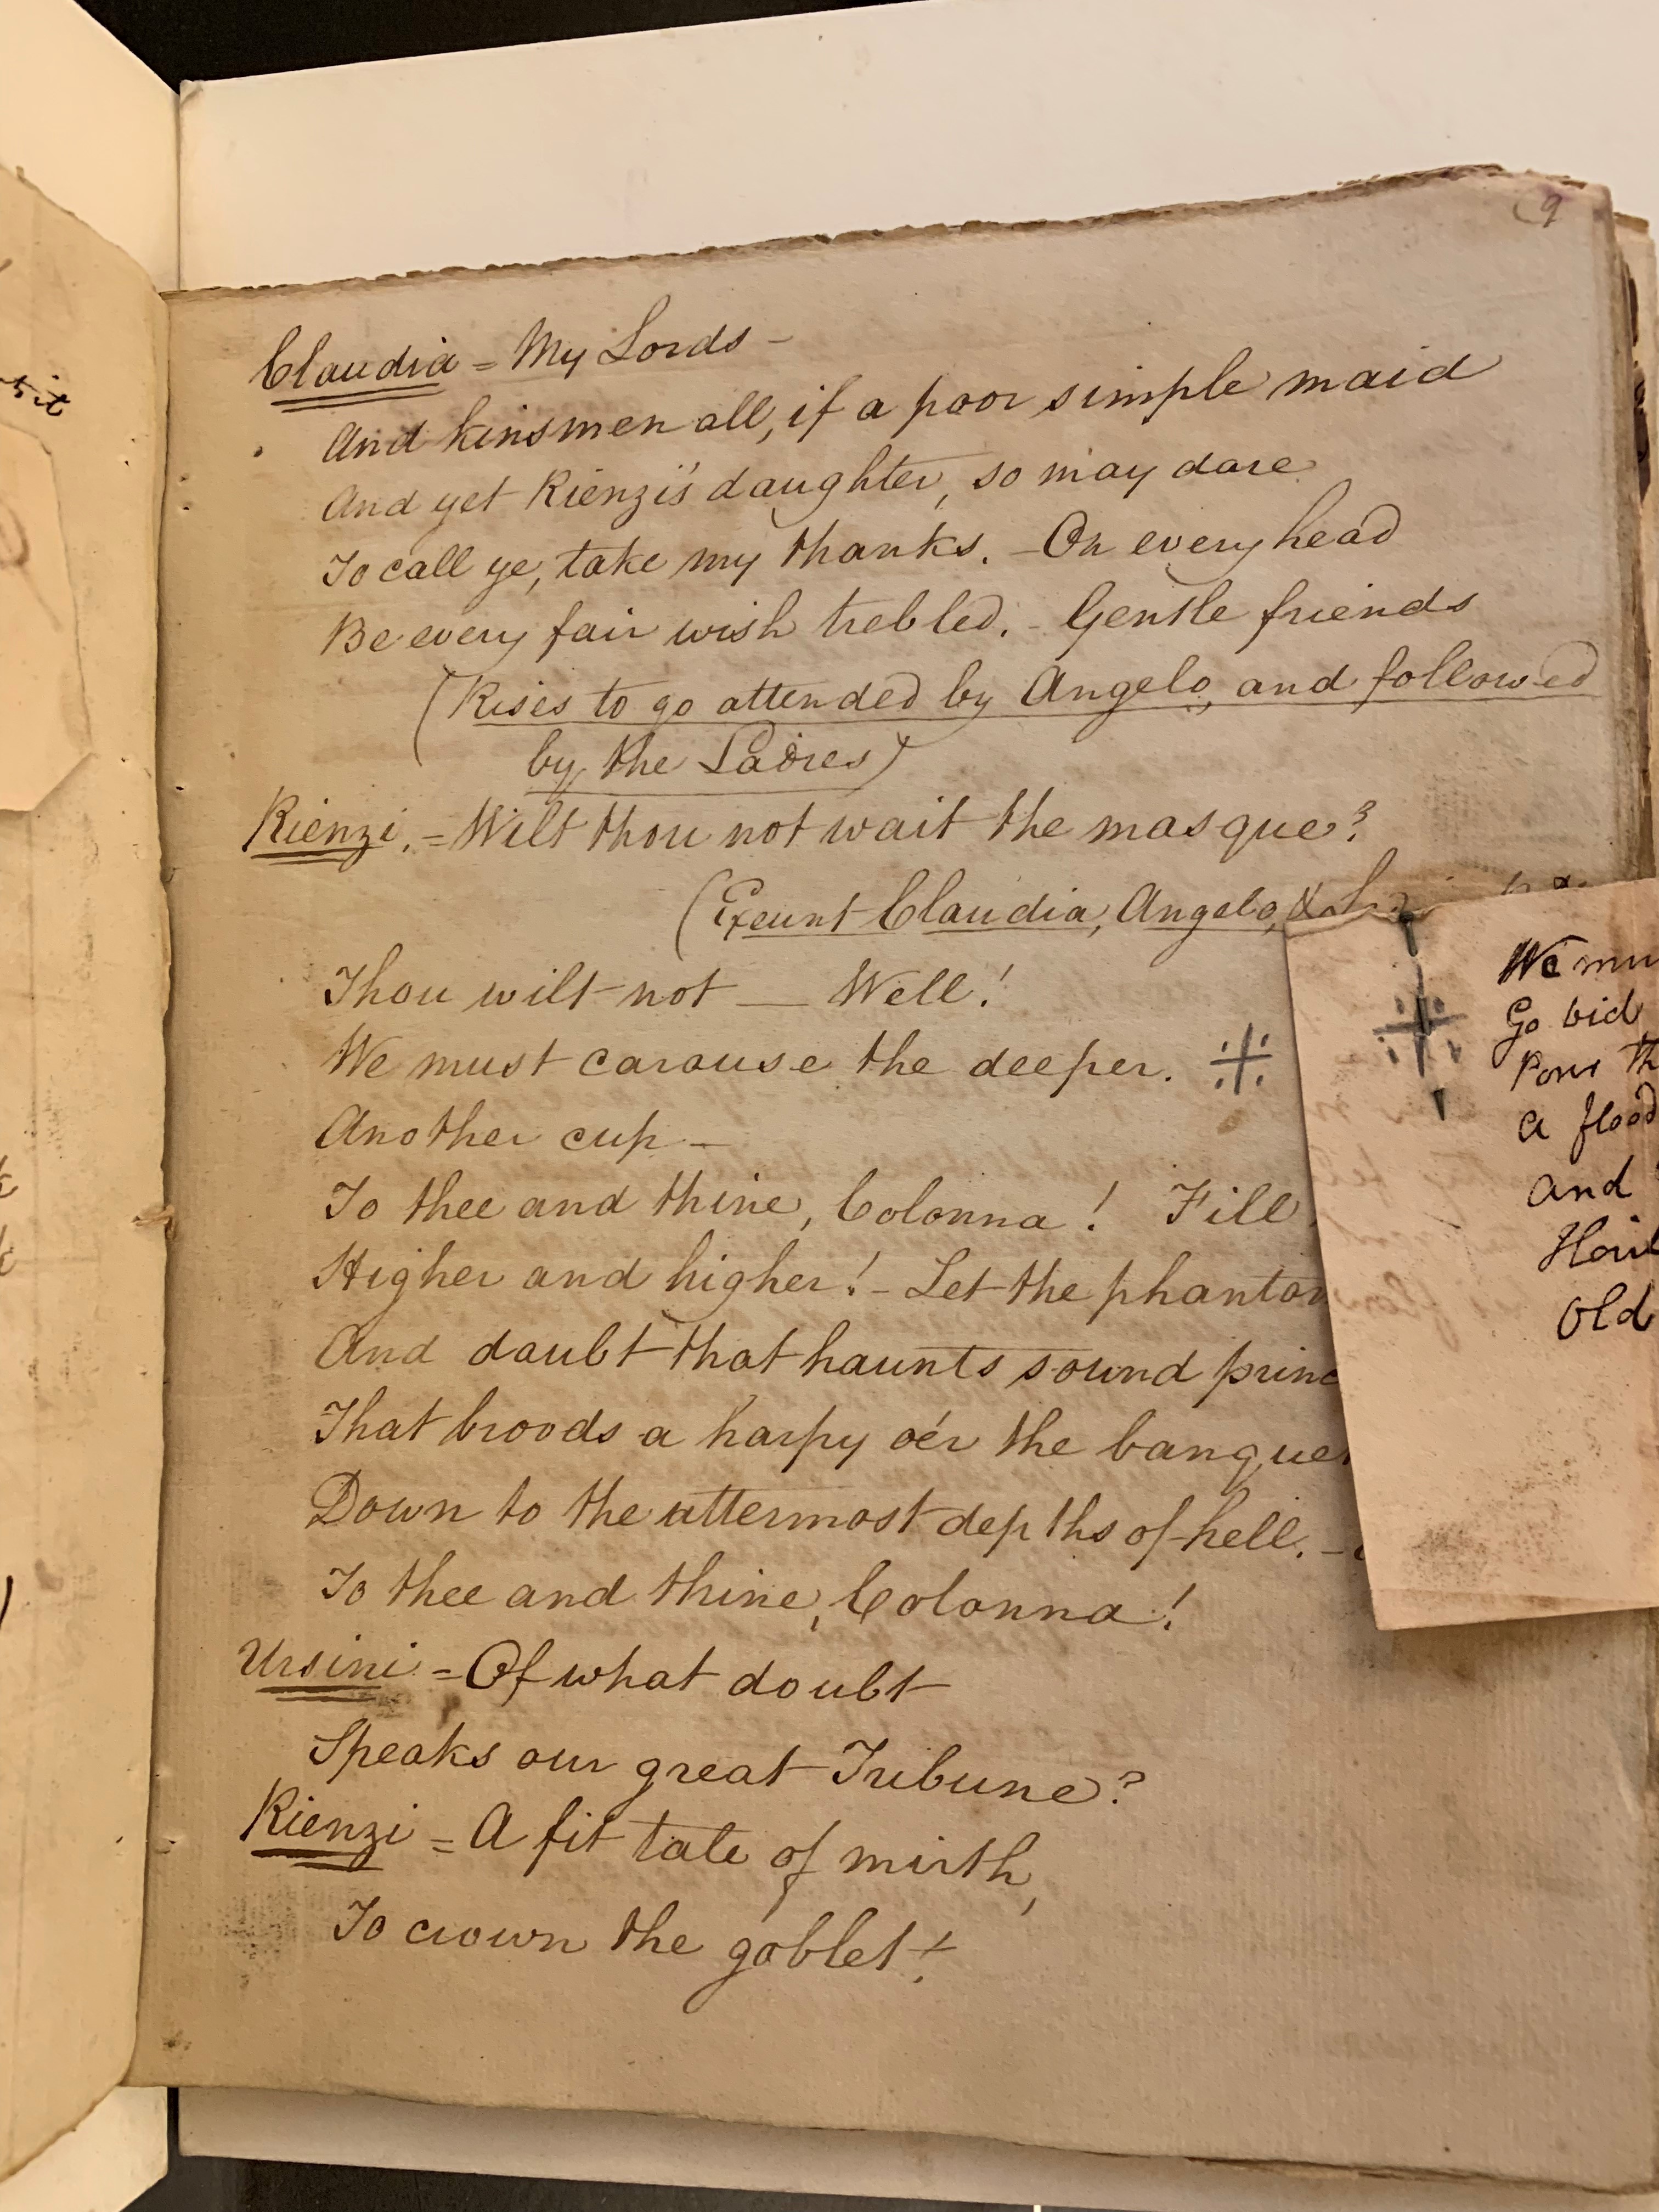 9
Claudia = My Lords -
And kinsmen all, if a poor simple maid
And yet Rienzi's daughter, so may dare
To call ye, take my thanks. - On every head
Be every fair wish trebled. - Gentle friends
(Rises to go attended by Angelo, and followed
by the Ladies)
Rienzi. = Wilt thou not wait the masque?
(Exeunt Claudia, Angelo, &
Thou wilt not — Well!
We must carouse the deeper. ※
Another cup -
To thee and thine, Colonna! Fill
Higher and higher! - Let the
And doubt that haunts sound
That broods a harpy o'er the
Down to the uttermost depths of hell. -
To thee and thine, Colonna!
Ursini = Of what doubt
Speaks our great Tribune?
Rienzi = A fit tale of mirth,
To crown the goblet!
※ We
Go bid
Pour
A flood
And
Old